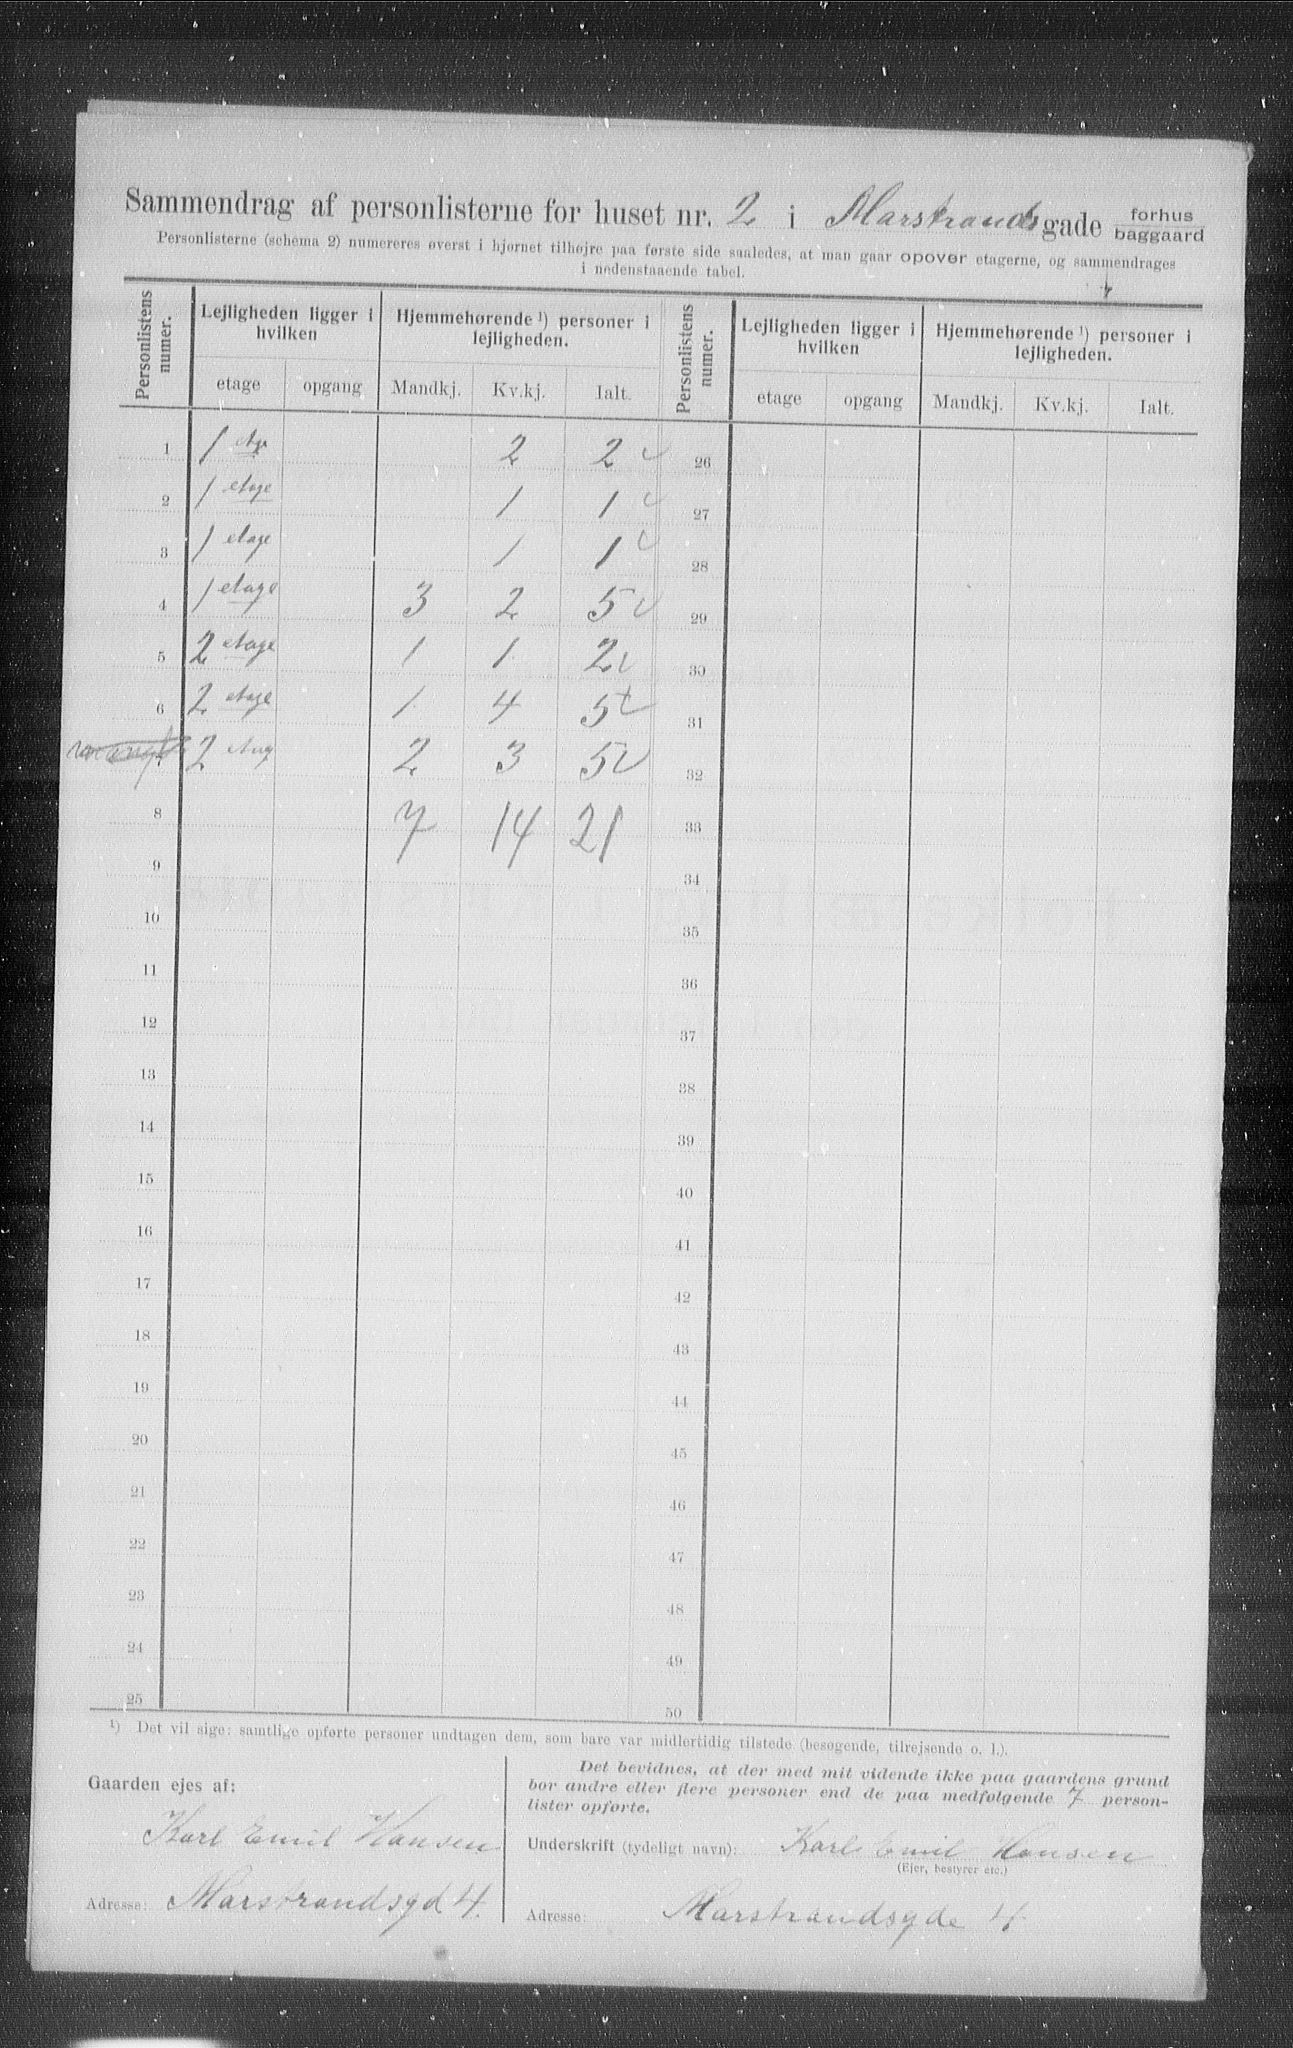 Sammendrag af personlisterne for huset nr. 2 i Marstrandsgade forhus baggaard
Personlisterne (schema 2) numereres øverst i hjørnet tilhøjre paa første side saaledes, at man gaar opover etagerne, og sammendrages
i nedenstaaende tabel.
Personlistens numer. Lejligheden ligger i hvilken Hjemmehørende ¹) personer i lejligheden. Personlistens numer. Lejligheden ligger i hvilken Hjemmehørende ¹) personer i lejligheden.
etage opgang Mandkj. Kv.kj. Ialt. etage opgang Mandkj. Kv.kj. Ialt.
1 1 etage 2 2 26
2 1 etage 1 1 27
3 1 etage 1 1 28
4 1 etage 3 2 5 29
5 2 etage 1 1 2 30
6 2 etage 1 4 5 31
7 2 2 3 5 32
8 7 14 21 33
9 34
10 35
11 36
12 37
13 38
14 39
15 40
16 41
17 42
18 43
19 44
20 45
21 46
22 47
23 48
24 49
25 50
¹) Det vil sige: samtlige opførte personer undtagen dem, som bare var midlertidig tilstede (besøgende, tilrejsende o. l.).
Gaarden ejes af:
Karl Emil Hansen
Adresse: Marstrandsgd 4.
Det bevidnes, at der med mit vidende ikke paa gaardens grund
bor andre eller flere personer end de paa medfølgende 7 person-
lister opførte.
Underskrift (tydeligt navn): Karl Emil Hansen
(Ejer, bestyrer etc.)
Adresse: Marstrandsgde 4